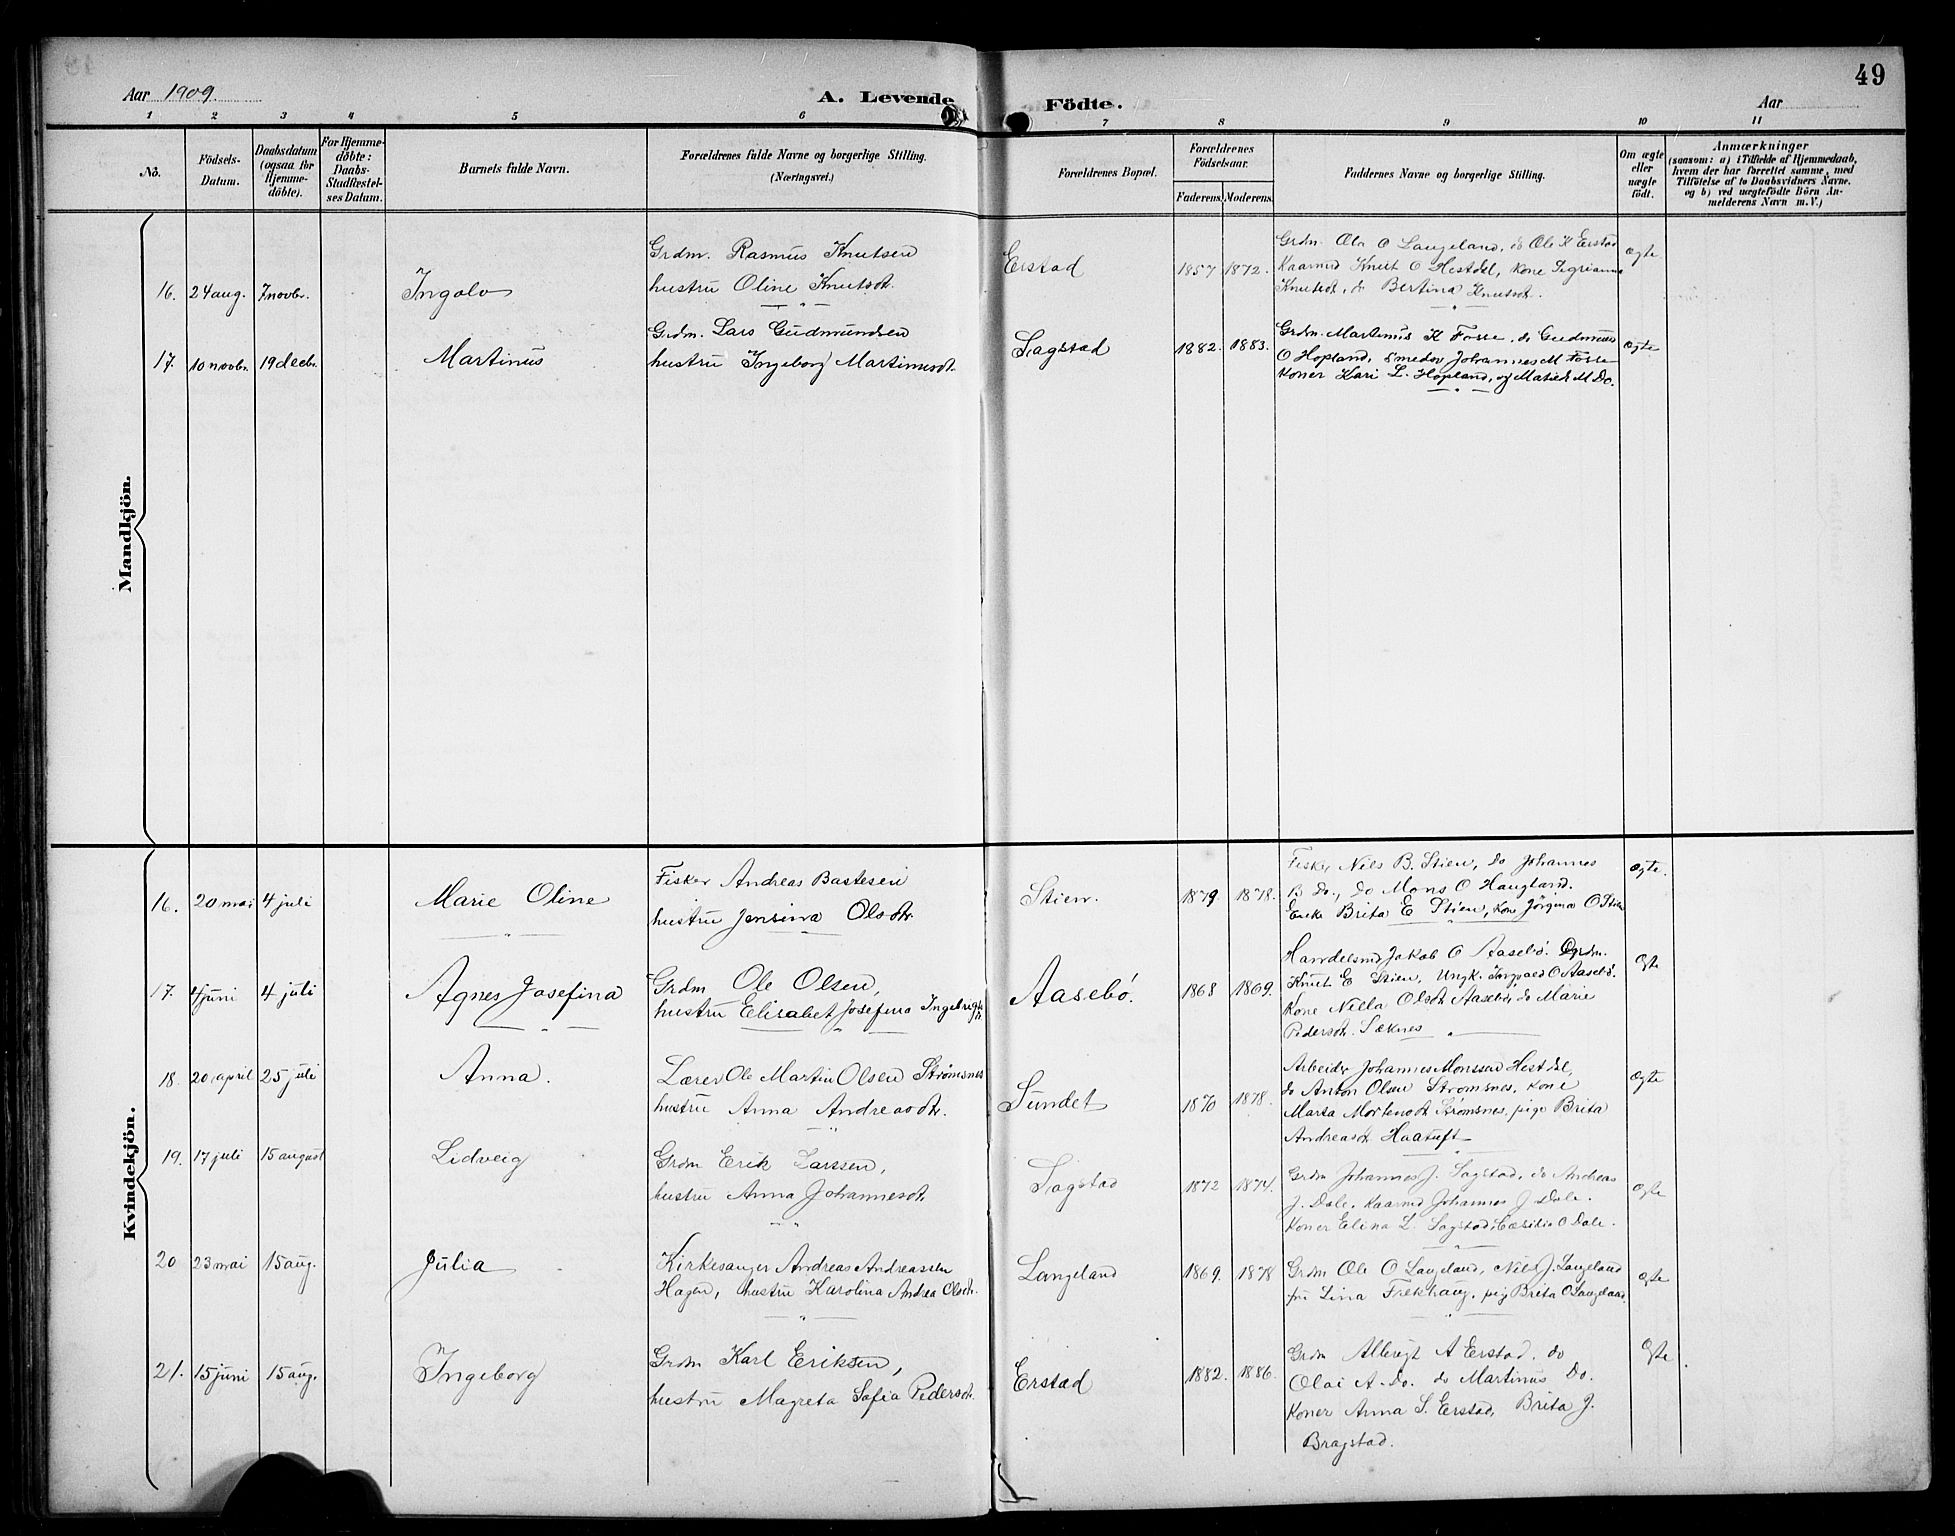 Aar 1909.
A. Levende Födte.
Aar
49
1 2 3 4 5 6 7 8 9 10 11
No.
Födsels-Datum.
Daabsdatum (ogsaa for Hjemme-döbte).
For Hjemme-döbte: Daabs-Stadfæstel-ses Datum.
Barnets fulde Navn.
Forældrenes fulde Navne og borgerlige Stilling.
(Næringsvei.)
Forældrenes Bopæl.
Forældrenes Födselsaar.
Faderens. Moderens.
Faddernes Navne og borgerlige Stilling.
Om ægte eller uægte födt.
Anmærkninger
(saasom: a) i Tilfælde af Hjemmedaab,
hvem der har forrettet samme, med
Tilföielse af to Daabsvidners Navne,
og b) ved uægtefödte Börn An-
melderens Navn m. V.)
Mandkjön.
16. 24 aug. 7 novbr. Ingolv
Grdm. Rasmus Knutsen
hustru Oline Knutsdt.
Erstad 1857 1872.
Grdm. Ola O Langeland, do Ole K Erstad
Kaarmd Knut O Hestdel, Kone
Knutsdt, do Bertina Knutsdt.
ægte
17. 10 novbr. 19 decbr. Martinus
Grdm. Lars Gudmundsen
hustru Ingeborg Martinusdt.
Sagstad 1882. 1883.
Grdm. Martinus K Fosse, do Gudmund
O Hopland, smeder Johannes M Fosse
Koner Kari L. Hopland, og M Do.
ægte
Kvindekjön.
16. 20 mai 4 juli Marie Oline
Fisker Andreas Bastesen
hustru Jensina Olsdtr.
Stien. 1879. 1878.
Fisker Nils B. Stien, do Johannes
B Do., do Mons O Haugland.
Enke Brita E Stien, Kone Jörgina O Stien
ægte.
17. 4 juni 4 juli Agnes Josefina
Grdm Ole Olsen,
hustru Elisabet Josefina
Aasebö. 1868 1869.
Handelsmd Jakob O Aasebö. Grdm.
Knut E Stien, Ungk. Ingvald O Aasebö.
Kone Nilla Olsdt Aasebö, do Marie
Pedersdt. Sæknes
ægte
18. 20 april 25 juli Anna.
Lærer Ole Martin Olsen Strömsnes
hustru Anna Andreasdtr.
Sundet 1870 1878.
Arbeider Johannes Monssen Hestdel,
do Anton Olsen Strömsnes, Kone
Marta Mortensdt Strömsnes, pige Brita
Andreasdt Haatuft
ægte
19. 17 juli 15 august Lidveig
Grdm Erik Larssen,
hustru Anna Johannesdt.
Sagstad 1872 1874.
Grdm Johannes J. Sagstad, do Andreas
J. Dale, Kaarmd Johannes J Dale.
Koner Elina L. Sagstad, O Dale.
ægte
20 23 mai 15 aug. Julia
Kirkesanger Andreas Andreassen
Hagen, hustru Karolina Andrea Olsdt.
Langeland 1869. 1878
Grdm Ole O Langeland, Nils J. Langeland
fru Lina Frekhaug, pig Brita O Langeland.
ægte
21. 15 juni 15 aug. Ingeborg
Grdm Karl Eriksen,
hustru Magreta Sofia Pedersdt.
Erstad 1882. 1886.
Grdm Albrigt A Erstad, do
Olai A. Do. do Martinus Do.
Koner Anna S. Erstad, Brita J.
Bragstad.
ægte